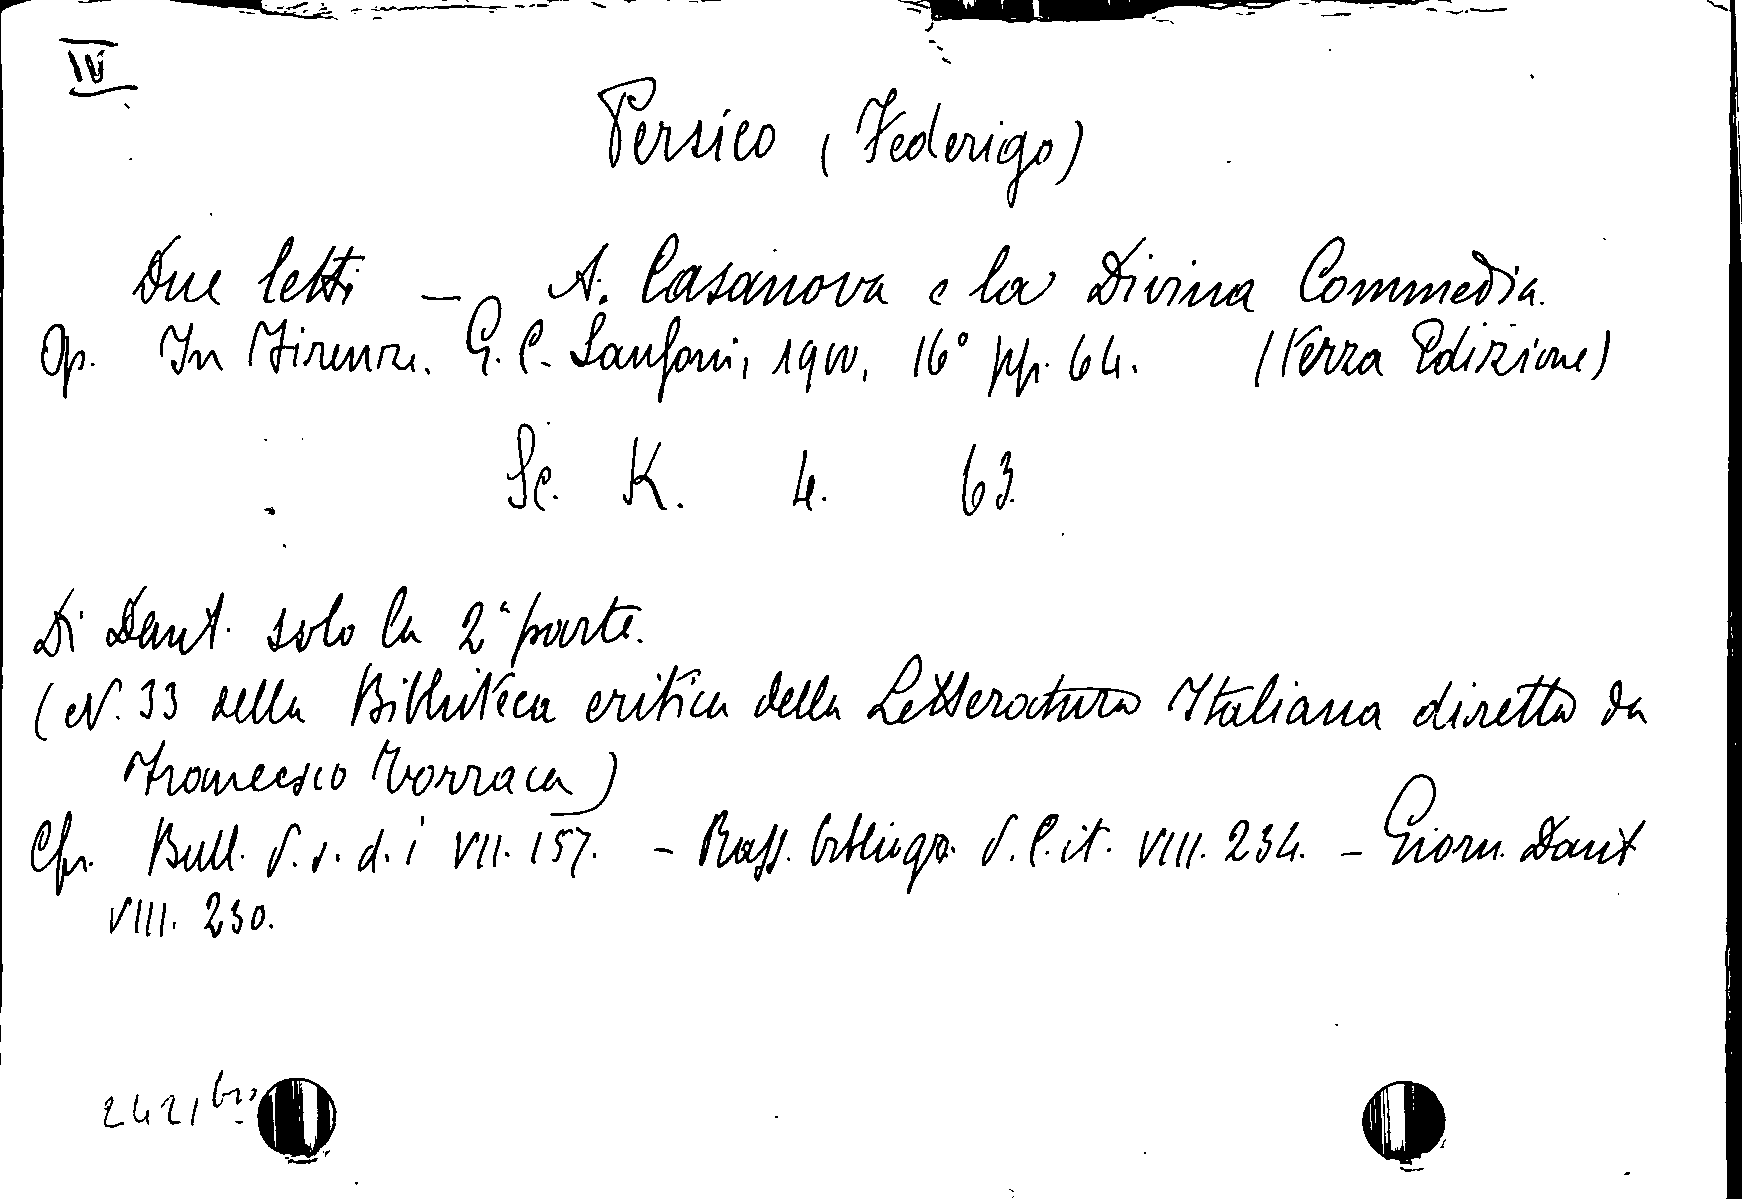 IV
Persico (Federigo)
Due letti — A. Casanova e la Divina Commedia.
Op. In Firenze. G. C. Sansoni, 1900, 16° pp. 64. (Terza Edizione)
Sc. K. 4. 63.
Di Dant. solo la 2ª parte.
(N. 33 della Biblioteca critica della Letteratura Italiana diretta da
Francesco Torraca)
Cfr. Bull. d. s. d. i VII. 157. - Rass. bibliogr. d. l. it. VIII. 234. - Giorn. Dant
VIII. 230.
2421 bis